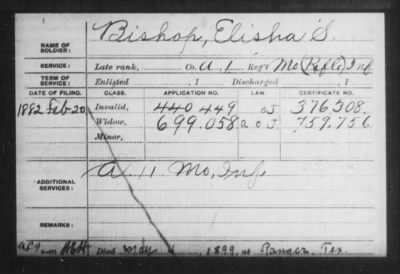 Bishop, Elisha S.
NAME OF SOLDIER:
SERVICE: Late rank, Co. A, 1 Reg't Mo (Rifle) Inf.
TERM OF SERVICE: Enlisted , 1 Discharged , 1
DATE OF FILING. CLASS. APPLICATION NO. LAW. CERTIFICATE NO.
1882 Feb 20 Invalid, 440 449 376308.
Widow, 699.058 759.756
Minor,
ADDITIONAL SERVICES: A. 11 Mo, Inf.
REMARKS:
Died 1899, at Ranger, Tex.